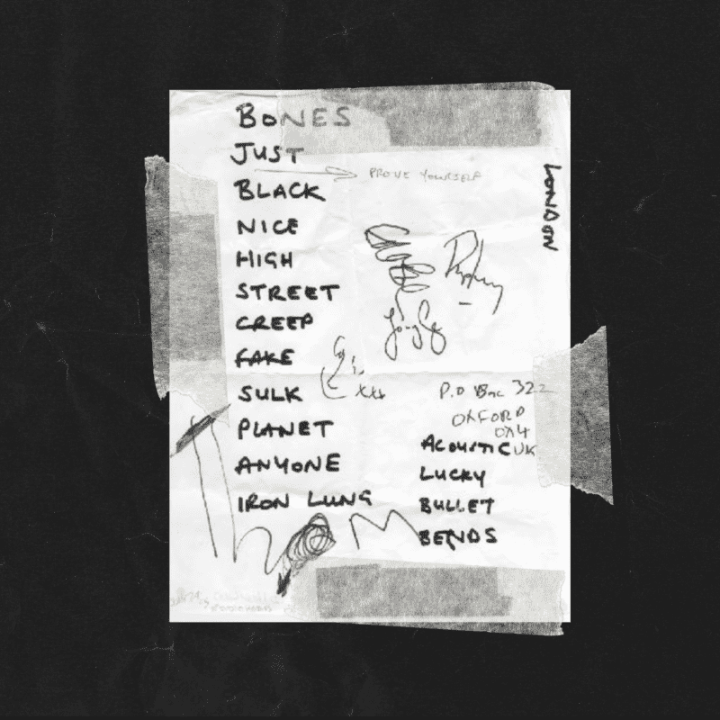 BONES
JUST
PROVE YOURSELF
BLACK
NICE
HIGH
STREET
CREEP
FAKE
SULK
PLANET
ANYONE
IRON LUNG
LONDON
P.O Box 322
OXFORD
OX4
UK
ACOUSTIC
LUCKY
BULLET
BENDS
Thom